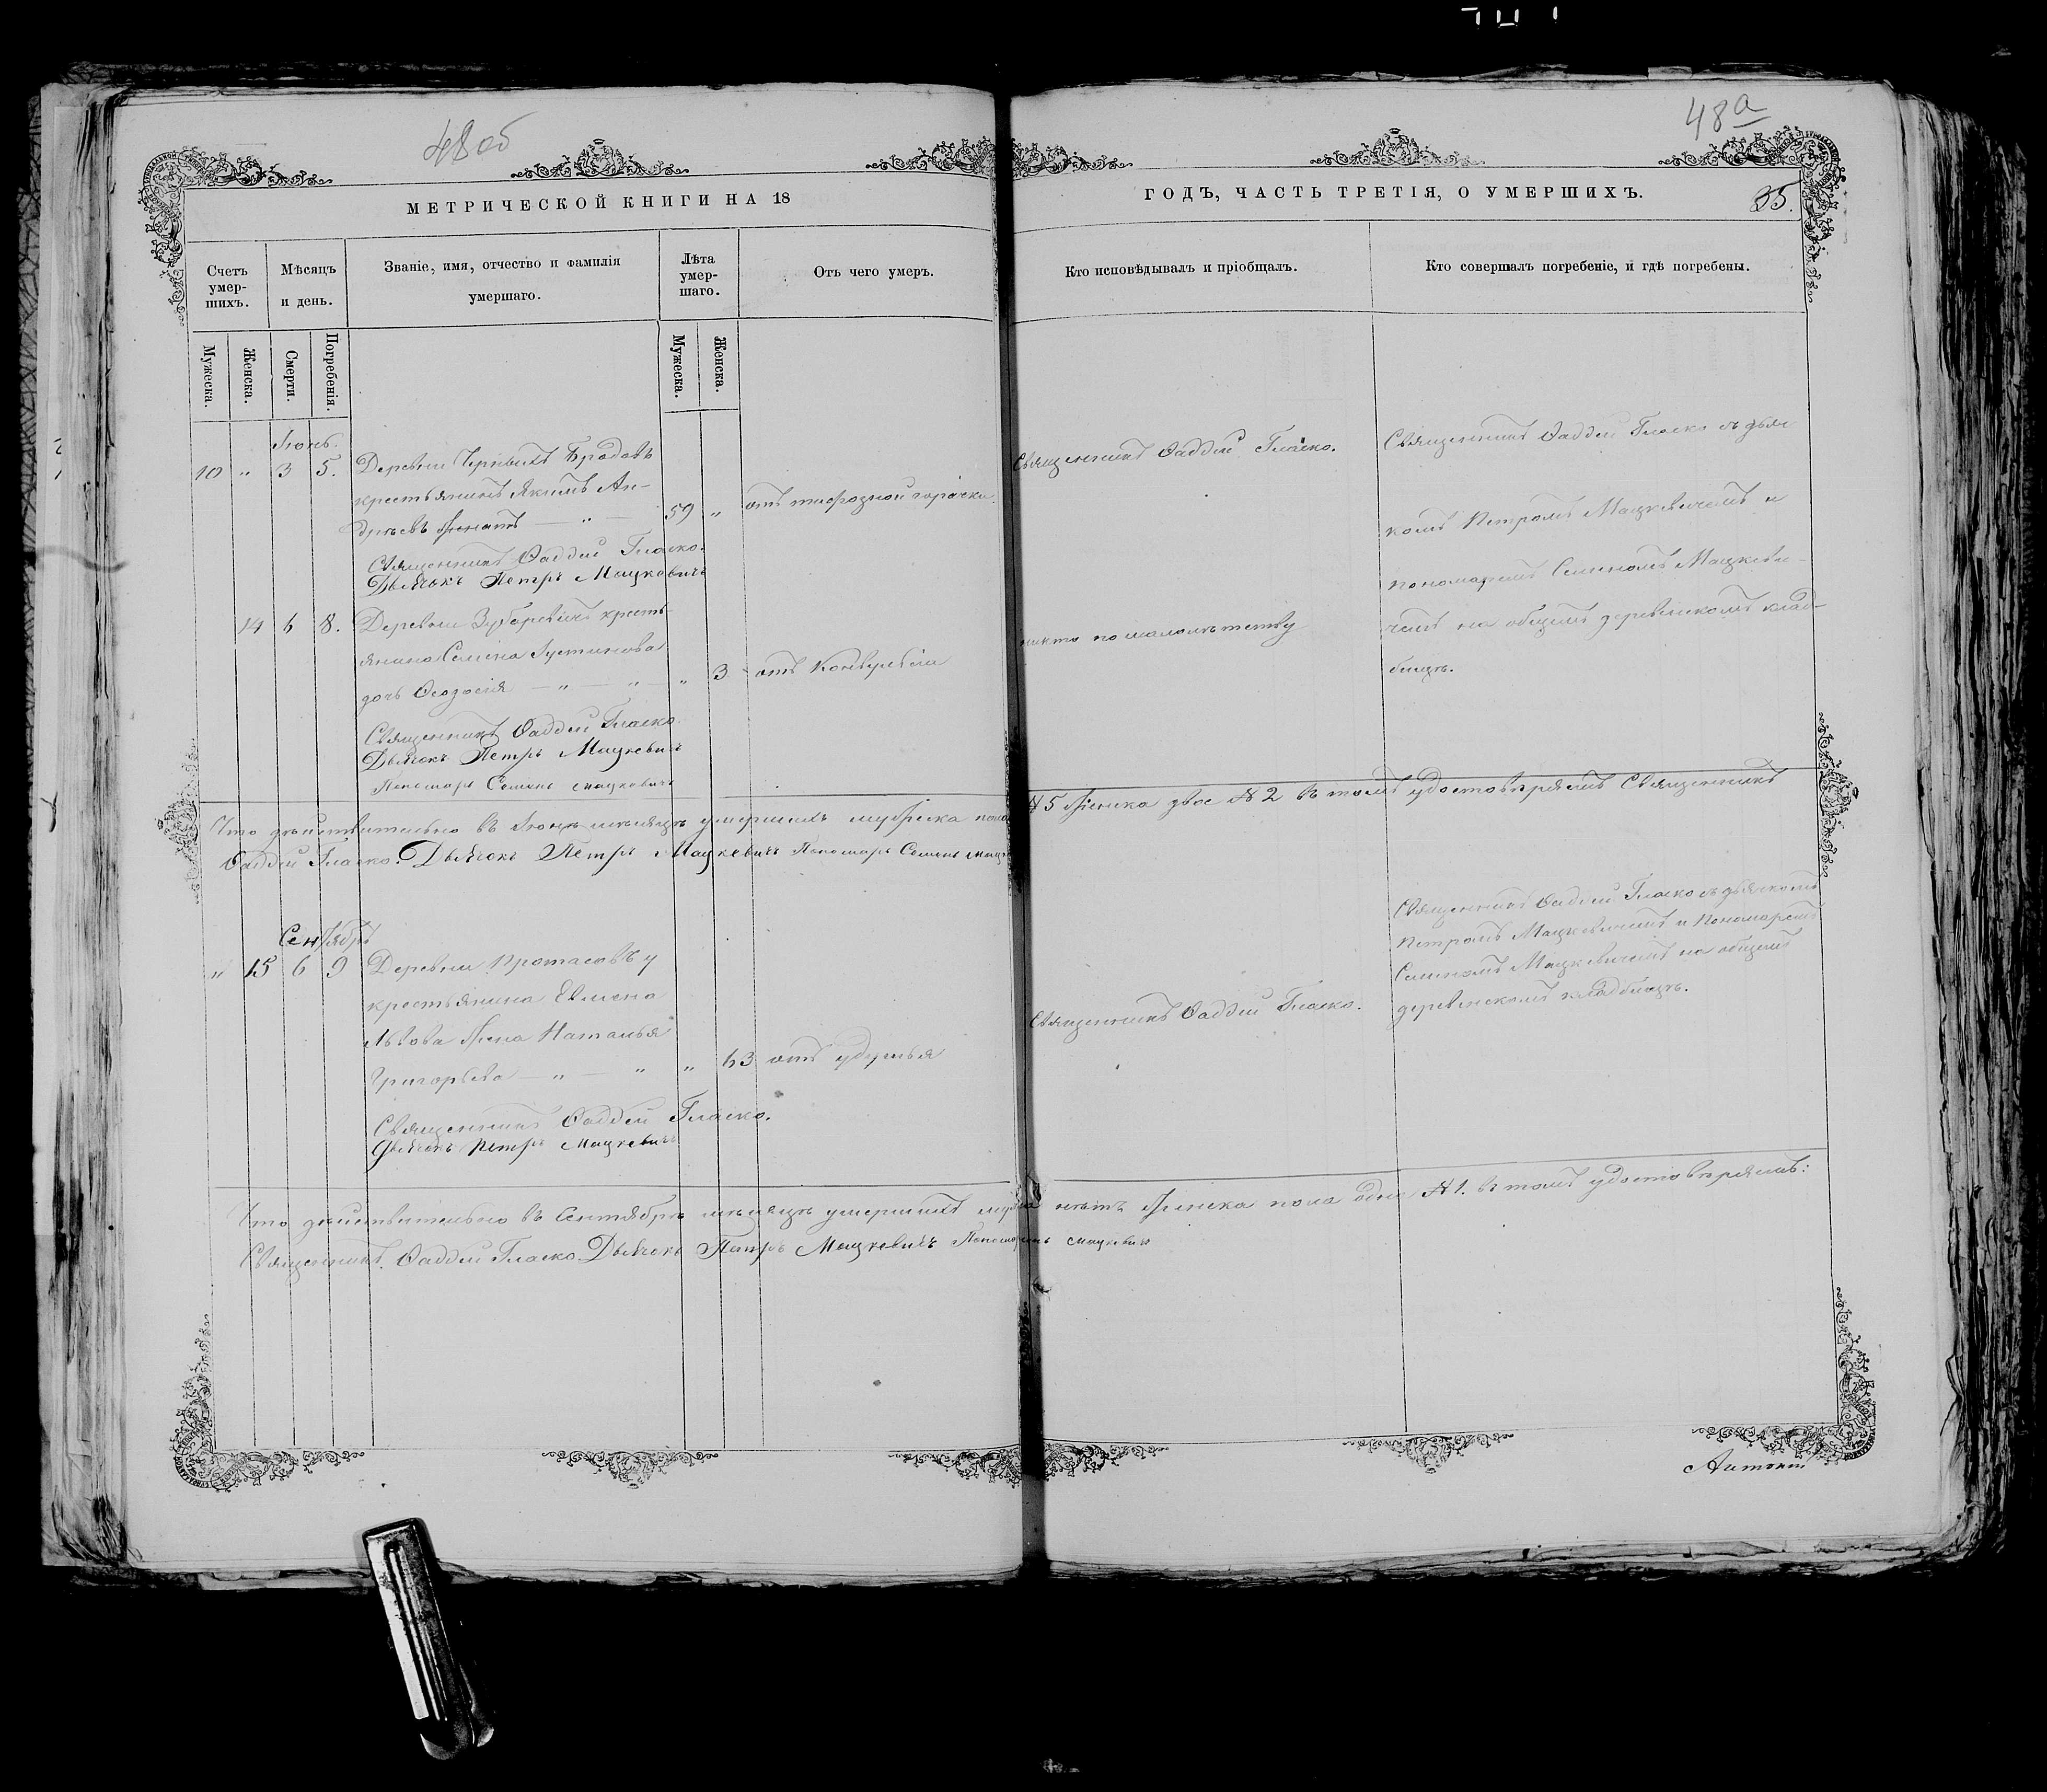 48 об
48 а
МЕТРИЧЕСКОЙ КНИГИ НА 18
ГОДЪ, ЧАСТЬ ТРЕТІЯ, О УМЕРШИХЪ.
35.
Счетъ умер-шихъ.
Мѣсяцъ и день.
Званіе, имя, отчество и фамилія умершаго.
Лѣта умер-шаго.
Отъ чего умеръ.
Кто исповѣдывалъ и пріобщалъ.
Кто совершалъ погребеніе, и гдѣ погребены.
Мужеска.
Женска.
Смерти.
Погребенія.
Мужеска.
Женска.
Іюнь.
10 " 3 5. Деревни Черныхъ Бродовъ
крестьянинъ Якимъ Ан-
дреевъ 59 " отъ тифозной горячки.
Священникъ Ѳаддей Гласко.
Дьячокъ Петръ Мацкевичъ
Священникъ Ѳаддей Гласко.
Священникъ Ѳаддей Гласко съ дьяч
комъ Петромъ Мацкевичемъ и
пономаремъ Семеномъ Мацкеви-
чемъ на общемъ деревенскомъ клад-
бищѣ.
14 6 8. Деревни Зубаревичъ кресть-
янина Семена Іустинова
дочь Ѳеодосія — " — " — " 3 отъ Конвульсіи
никто по малолѣтству
Священникъ Ѳаддей Гласко.
Дьячокъ Петръ Мацкевичъ
Пономарь Семенъ Мацкевичъ
Что дѣйствительно въ Іюнѣ мѣсяцѣ умершихъ мужеска пола № 5 женска двое № 2 въ томъ удостовѣряемъ Священникъ
Ѳаддей Гласко. Дьячокъ Петръ Мацкевичъ Пономарь Семенъ
Сентябрь
" 15 6 9 Деревни Протасовъ
крестьянина Евмена
Львова жена Наталья
Григорьева — " — " " 63 отъ удушья
Священникъ Ѳаддей Гласко.
Дьячокъ Петръ Мацкевичъ
Священникъ Ѳаддей Гласко.
Священникъ Ѳаддей Гласко съ дьячкомъ
Петромъ Мацкевичемъ и Пономаремъ
Семеномъ Мацкевичемъ на общемъ
деревенскомъ кладбищѣ.
Что дѣйствительно въ Сентябрѣ мѣсяцѣ умершихъ нѣтъ женска пола одна № 1. въ томъ удостовѣряемъ:
Священникъ Ѳаддей Гласко Дьячокъ Петръ Мацкевичъ Пономарь Мацкевичъ